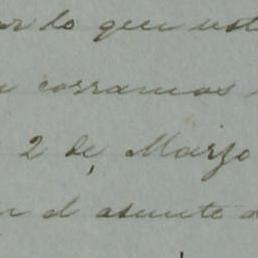 or lo que ust
corramos
2 de Marzo
el asunto